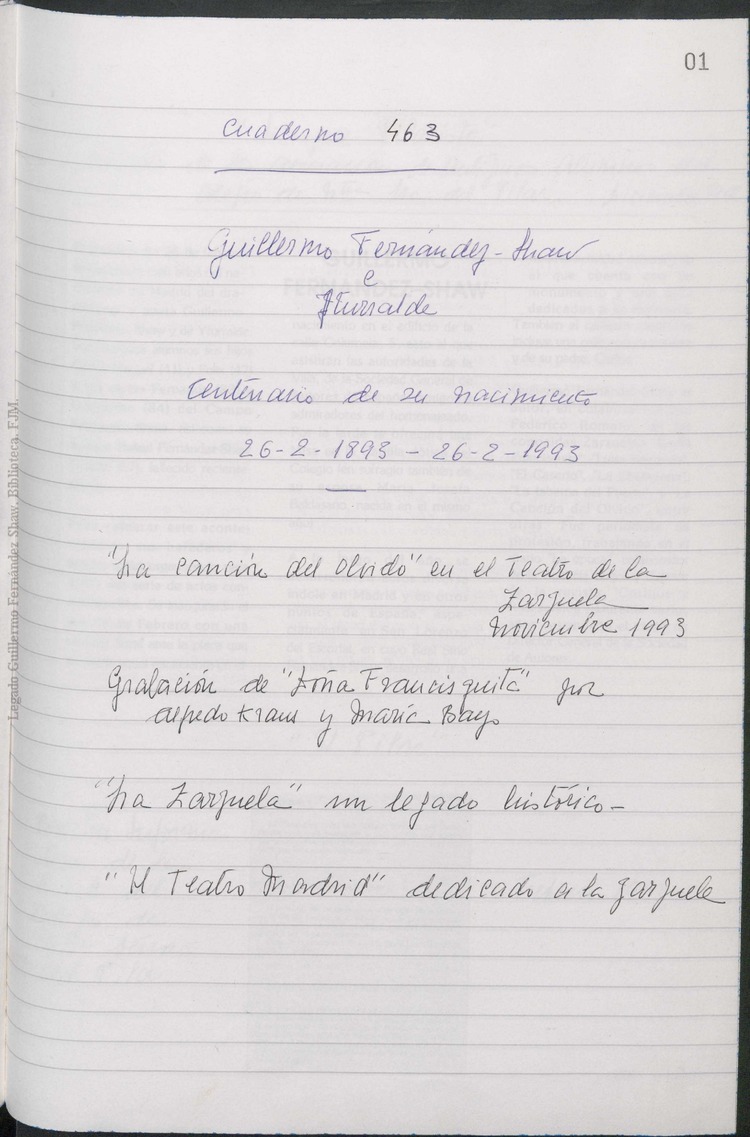 01
Cuaderno 463
Guillermo Fernández-Shaw
e
Iturralde
Centenario de su nacimiento
26-2-1893 - 26-2-1993
"La canción del olvido" en el Teatro de la
Zarzuela
Noviembre 1993
Grabación de "Doña Francisquita" por
Alfredo Kraus y María Bayo
"La Zarzuela" un legado histórico-
"El Teatro Madrid" dedicado a la zarzuela
Legado Guillermo Fernández Shaw. Biblioteca. FJM.